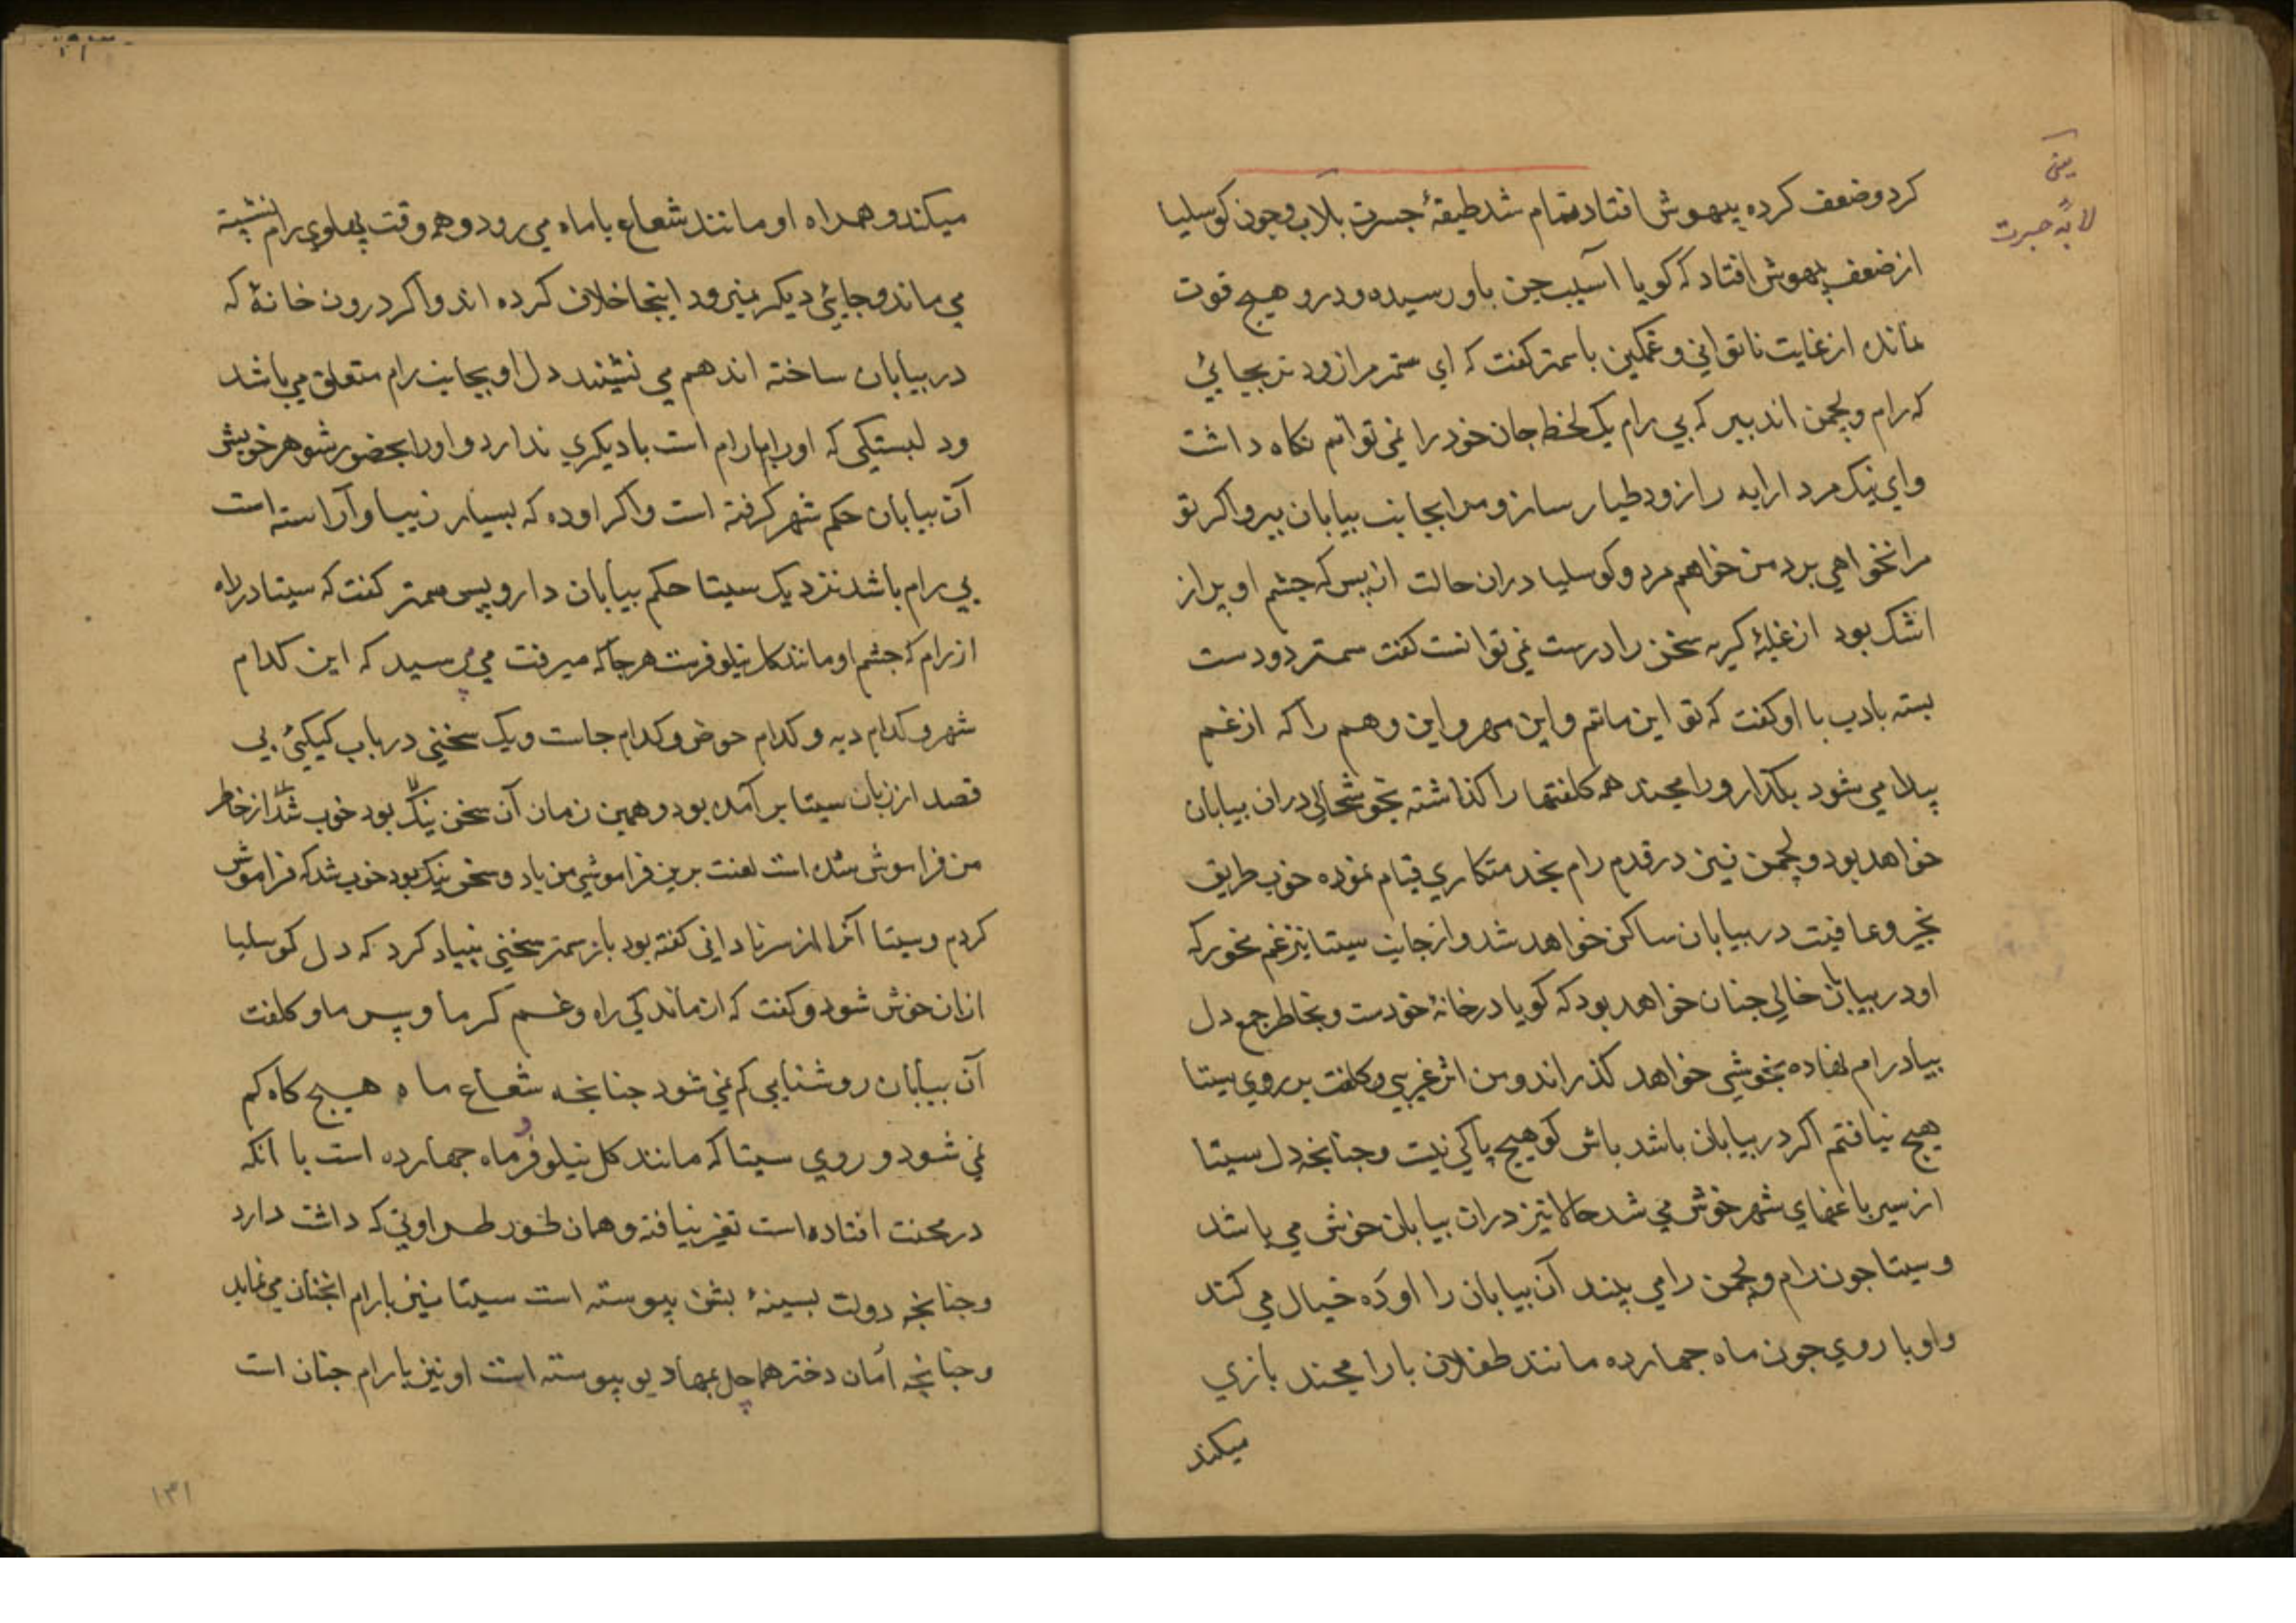 یعنی
لابهٔ حسرت
کرد وضعف کرده بیهوش افتاد تمام شد طیفهٔ جسرت بلاپ وچون کوسلیا
از ضعف بیهوش افتاد که کویا آسیب جن باو رسیده ودرو هیچ قوت
نمانده از غایت ناتوانی وغمکین باسمتر کفت که ای سمتر مرا زود تر بجائی
که رام ولچمن اند ببر که بی رام یک لحظ جان خود را نمی توانم نکاه داشت
وای نیک مرد ارابه را زود طیار ساز ومرا بجانب بیابان ببر واکر تو
مرا نخواهی برد من خواهم مرد وکوسلیا دران حالت از بس که چشم او پر از
اشک بود از غلبهٔ کریه سخن را درست نمی توانست کفت سمتر دو دست
بسته بادب با او کفت که تو این ماتم واین مهر واین وهم را که از غم
پیدا می شود بکذار ورامچند همه کلفتها را کذاشته بخوشحالی دران بیابان
خواهد بود ولچمن نیز در قدم رام بخدمتکاری قیام نموده خوب طریق
بخیر وعافیت در بیابان ساکن خواهد شد واز جانب سیتا نیز غم مخور که
او در بیابان خالی جنان خواهد بود که کویا در خانهٔ خودست وبخاطر جمع دل
بیاد رام نهاده بخوشی خواهد کذراند ومن اثر غریبی وکلفت بر روی سیتا
هیچ نیافتم اکر در بیابان باشد باش کو هیچ باکی نیست وجنانچه دل سیتا
از سیر باغهای شهر خوش می شد حالا نیز دران بیابان خوش می باشد
وسیتا جون رام ولچمن را می بیند آن بیابان را اوده خیال می کند
واو با روی جون ماه جهارده مانند طفلان با رامچند بازی
میکند
میکند وهمراه او مانند شعاع با ماه می رود وهمه وقت پهلوی رام نشسته
می ماند وجایی دیکر نمیرود اینجا خلاف کرده اند واکر درون خانهٔ که
در بیابان ساخته اند هم می نشیند دل او بجانب رام متعلق می باشد
ودلبستکی که او را با رام است با دیکری ندارد واو را بحضور شوهر خویش
آن بیابان حکم شهر کرفته است واکر اوده که بسیار زیبا وآراسته است
بی رام باشد نزدیک سیتا حکم بیابان دارد پس سمتر کفت که سیتا در راه
از رام که چشم او مانند کل نیلوفرست هر جا که میرفت می پرسید که این کدام
شهر وکدام دیه وکدام حوض وکدام جاست ویک سخنی در باب کیکئی بی
قصد از زبان سیتا بر آمده بود وهمین زمان آن سخن نیک بود خوب شد از خاطر
من فراموش شده است لعنت برین فراموشی من باد وسخن نیک بود خوب شد که فراموش
کردم وسیتا آنرا از سر نادانی کفته بود باز سمتر سخنی بنیاد کرد که دل کوسلیا
ازان خوش شود وکفت که از ماندکی راه وغم کرما وسرما وکلفت
آن بیابان روشنایی کم نمی شود جنانچه شعاع ماه هیچ کاه کم
نمی شود وروی سیتا که مانند کل نیلوفر و ماه جهارده است با آنکه
در محنت افتاده است تغیر نیافته وهمان طور طراوتی که داشت دارد
وجنانچه دولت بسینهٔ بشن پیوسته است سیتا نیز با رام انجنان می نماید
وجنانچه امان دختر هماچل بمهادیو پیوسته است او نیز با رام جنان است
۱۳۱